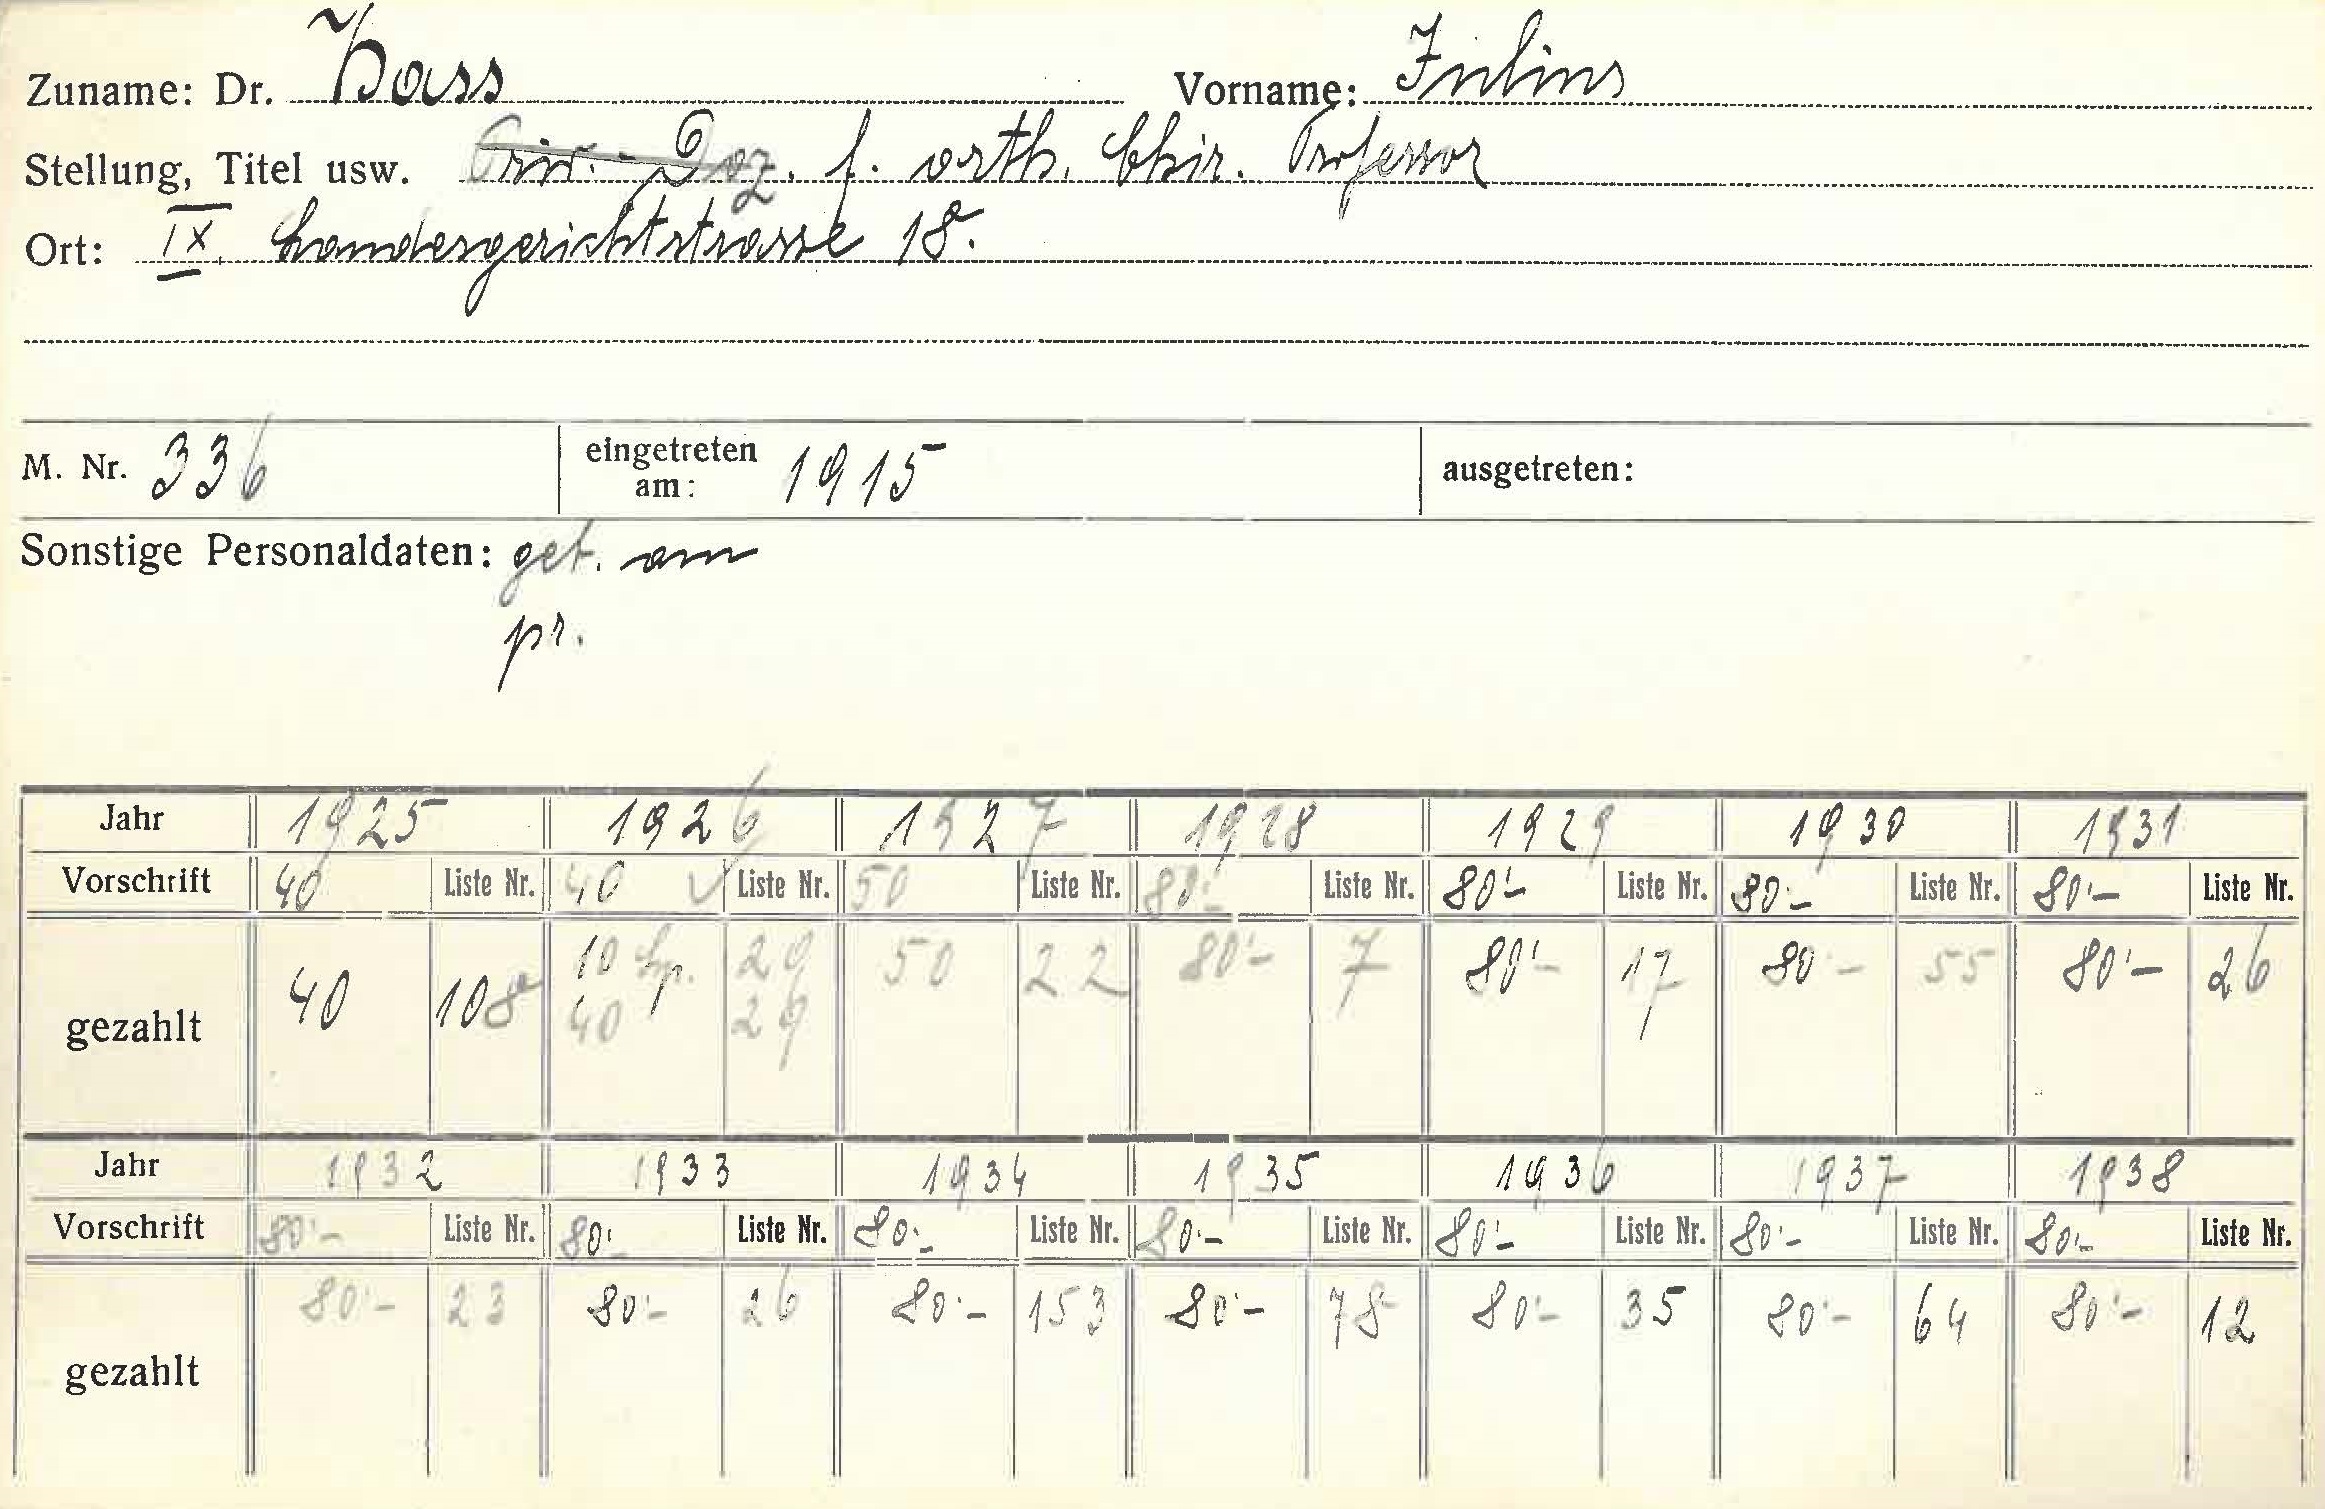 Zuname: Dr. Hass Vorname: Julius
Stellung, Titel usw. Priv.-Doz. f. orth. Chir. Professor
Ort: IX. Landesgerichtstrasse 18.
M. Nr. 336 eingetreten am: 1915 ausgetreten:
Sonstige Personaldaten: get. am
pr.
Jahr 1925 1926 1927 1928 1929 1930 1931
Vorschrift 40 Liste Nr. 40 ✓ Liste Nr. 50 Liste Nr. 80'- Liste Nr. 80'- Liste Nr. 80'- Liste Nr. 80'- Liste Nr.
gezahlt 40 108a 10 Sp. 29 50 22 80'- 7 80'- 17 80'- 55 80'- 26
40 29
Jahr 1932 1933 1934 1935 1936 1937 1938
Vorschrift 80'- Liste Nr. 80'- Liste Nr. 80'- Liste Nr. 80'- Liste Nr. 80'- Liste Nr. 80'- Liste Nr. 80'- Liste Nr.
gezahlt 80'- 23 80'- 26 80'- 153 80'- 78 80'- 35 80'- 64 80'- 12